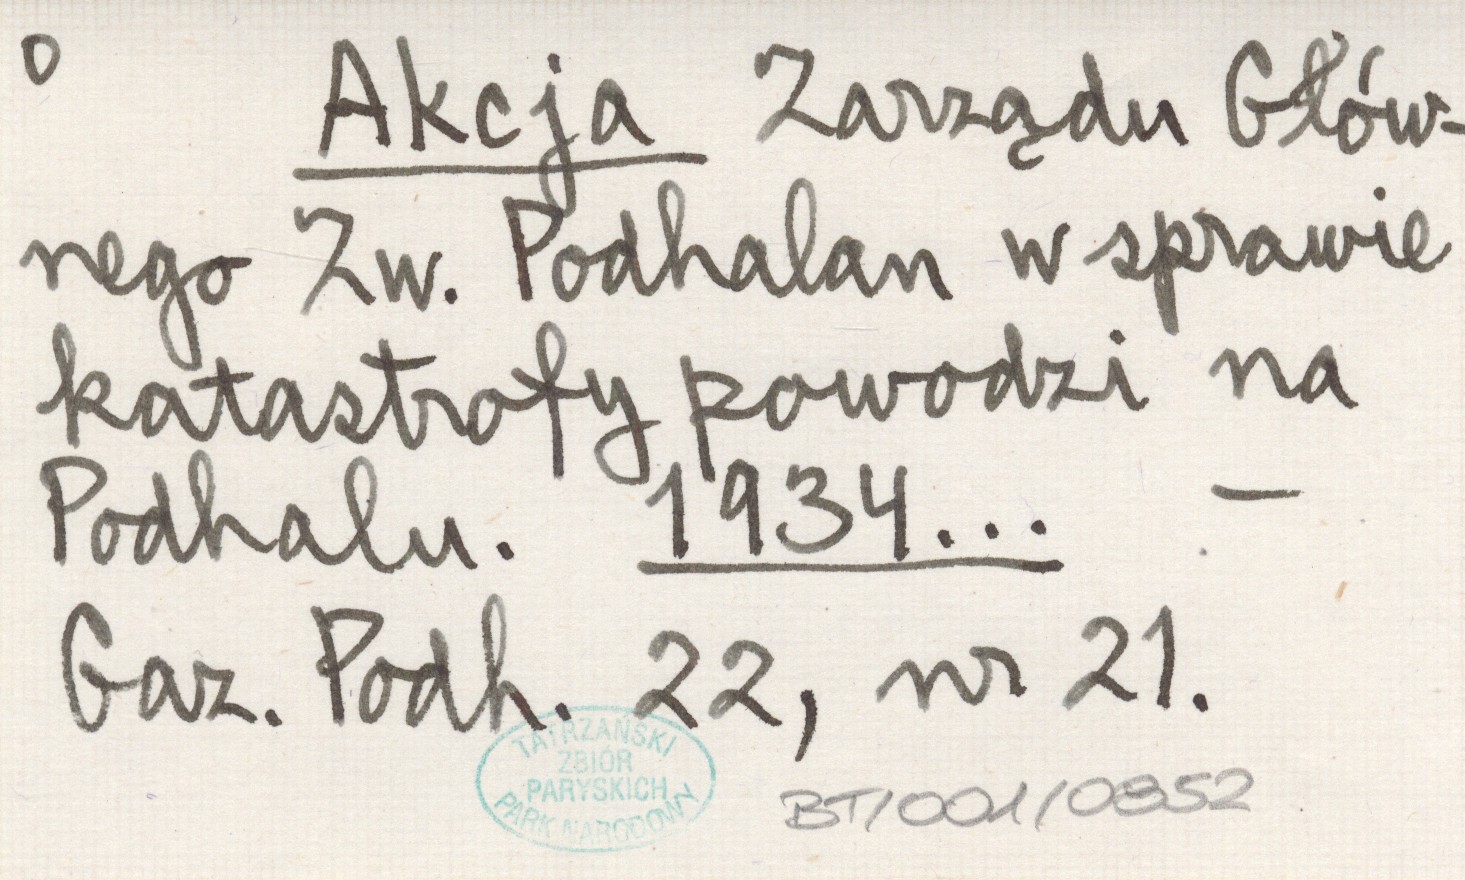 o Akcja Zarządu Głów-
nego Zw. Podhalan w sprawie
katastrofy powodzi na
Podhalu. 1934... —
Gaz. Podh. 22, nr 21.
TATRZAŃSKI
ZBIÓR
PARYSKICH
PARK NARODOWY
BT/001/0852